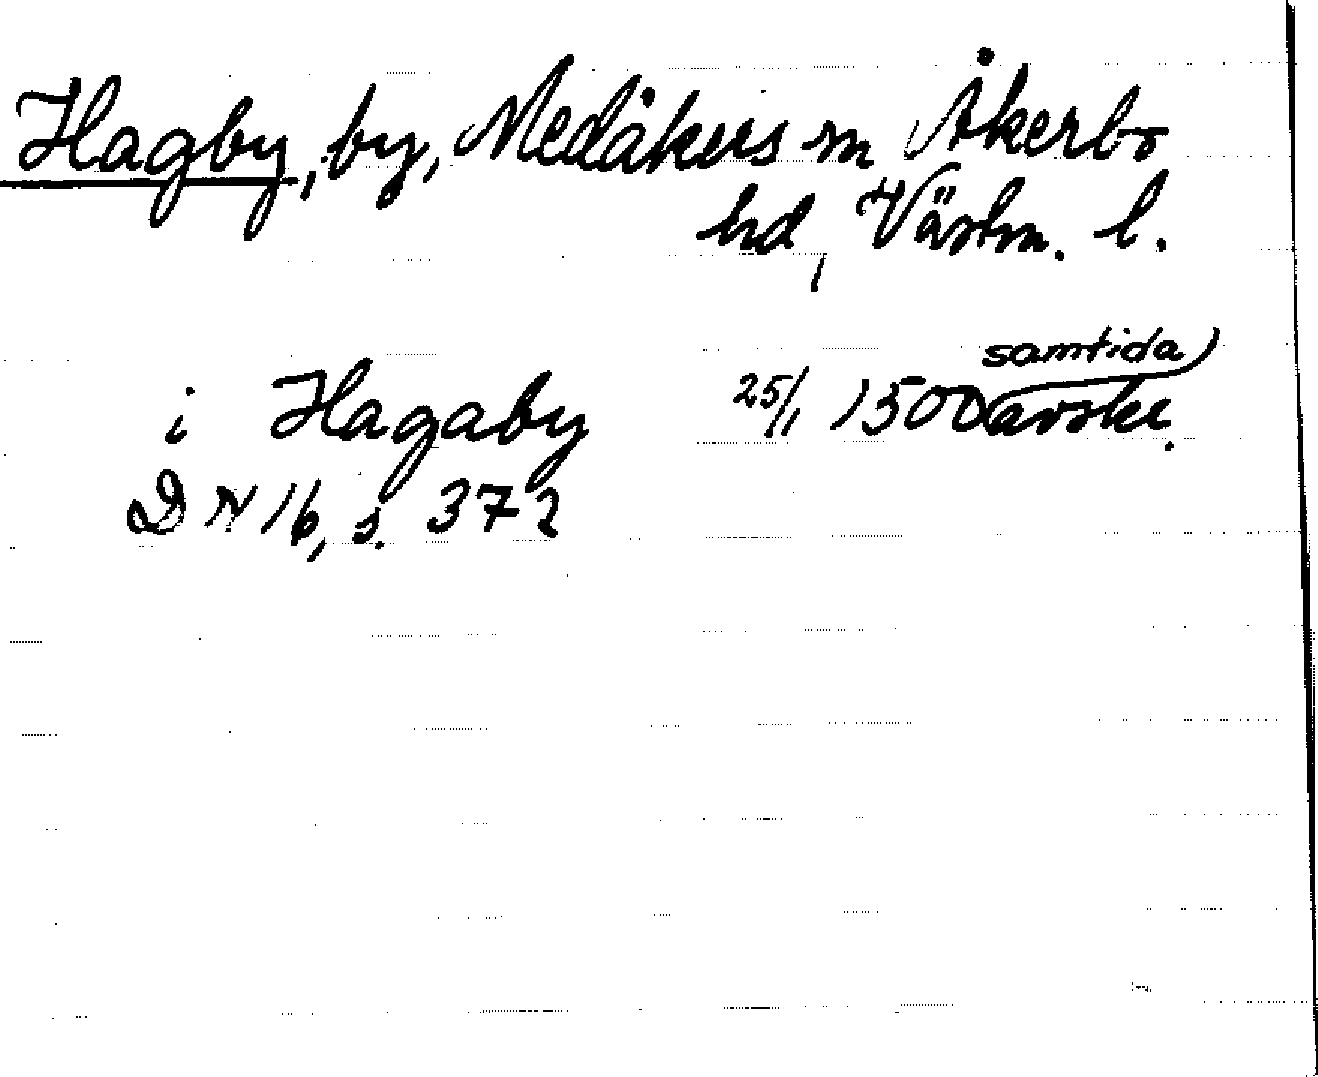 Hagby, by, Medåkers sn Åkerbo
hd, Västm. l.
i Hagaby 25/1 1500 samtida avskr.
DN 16, s. 372